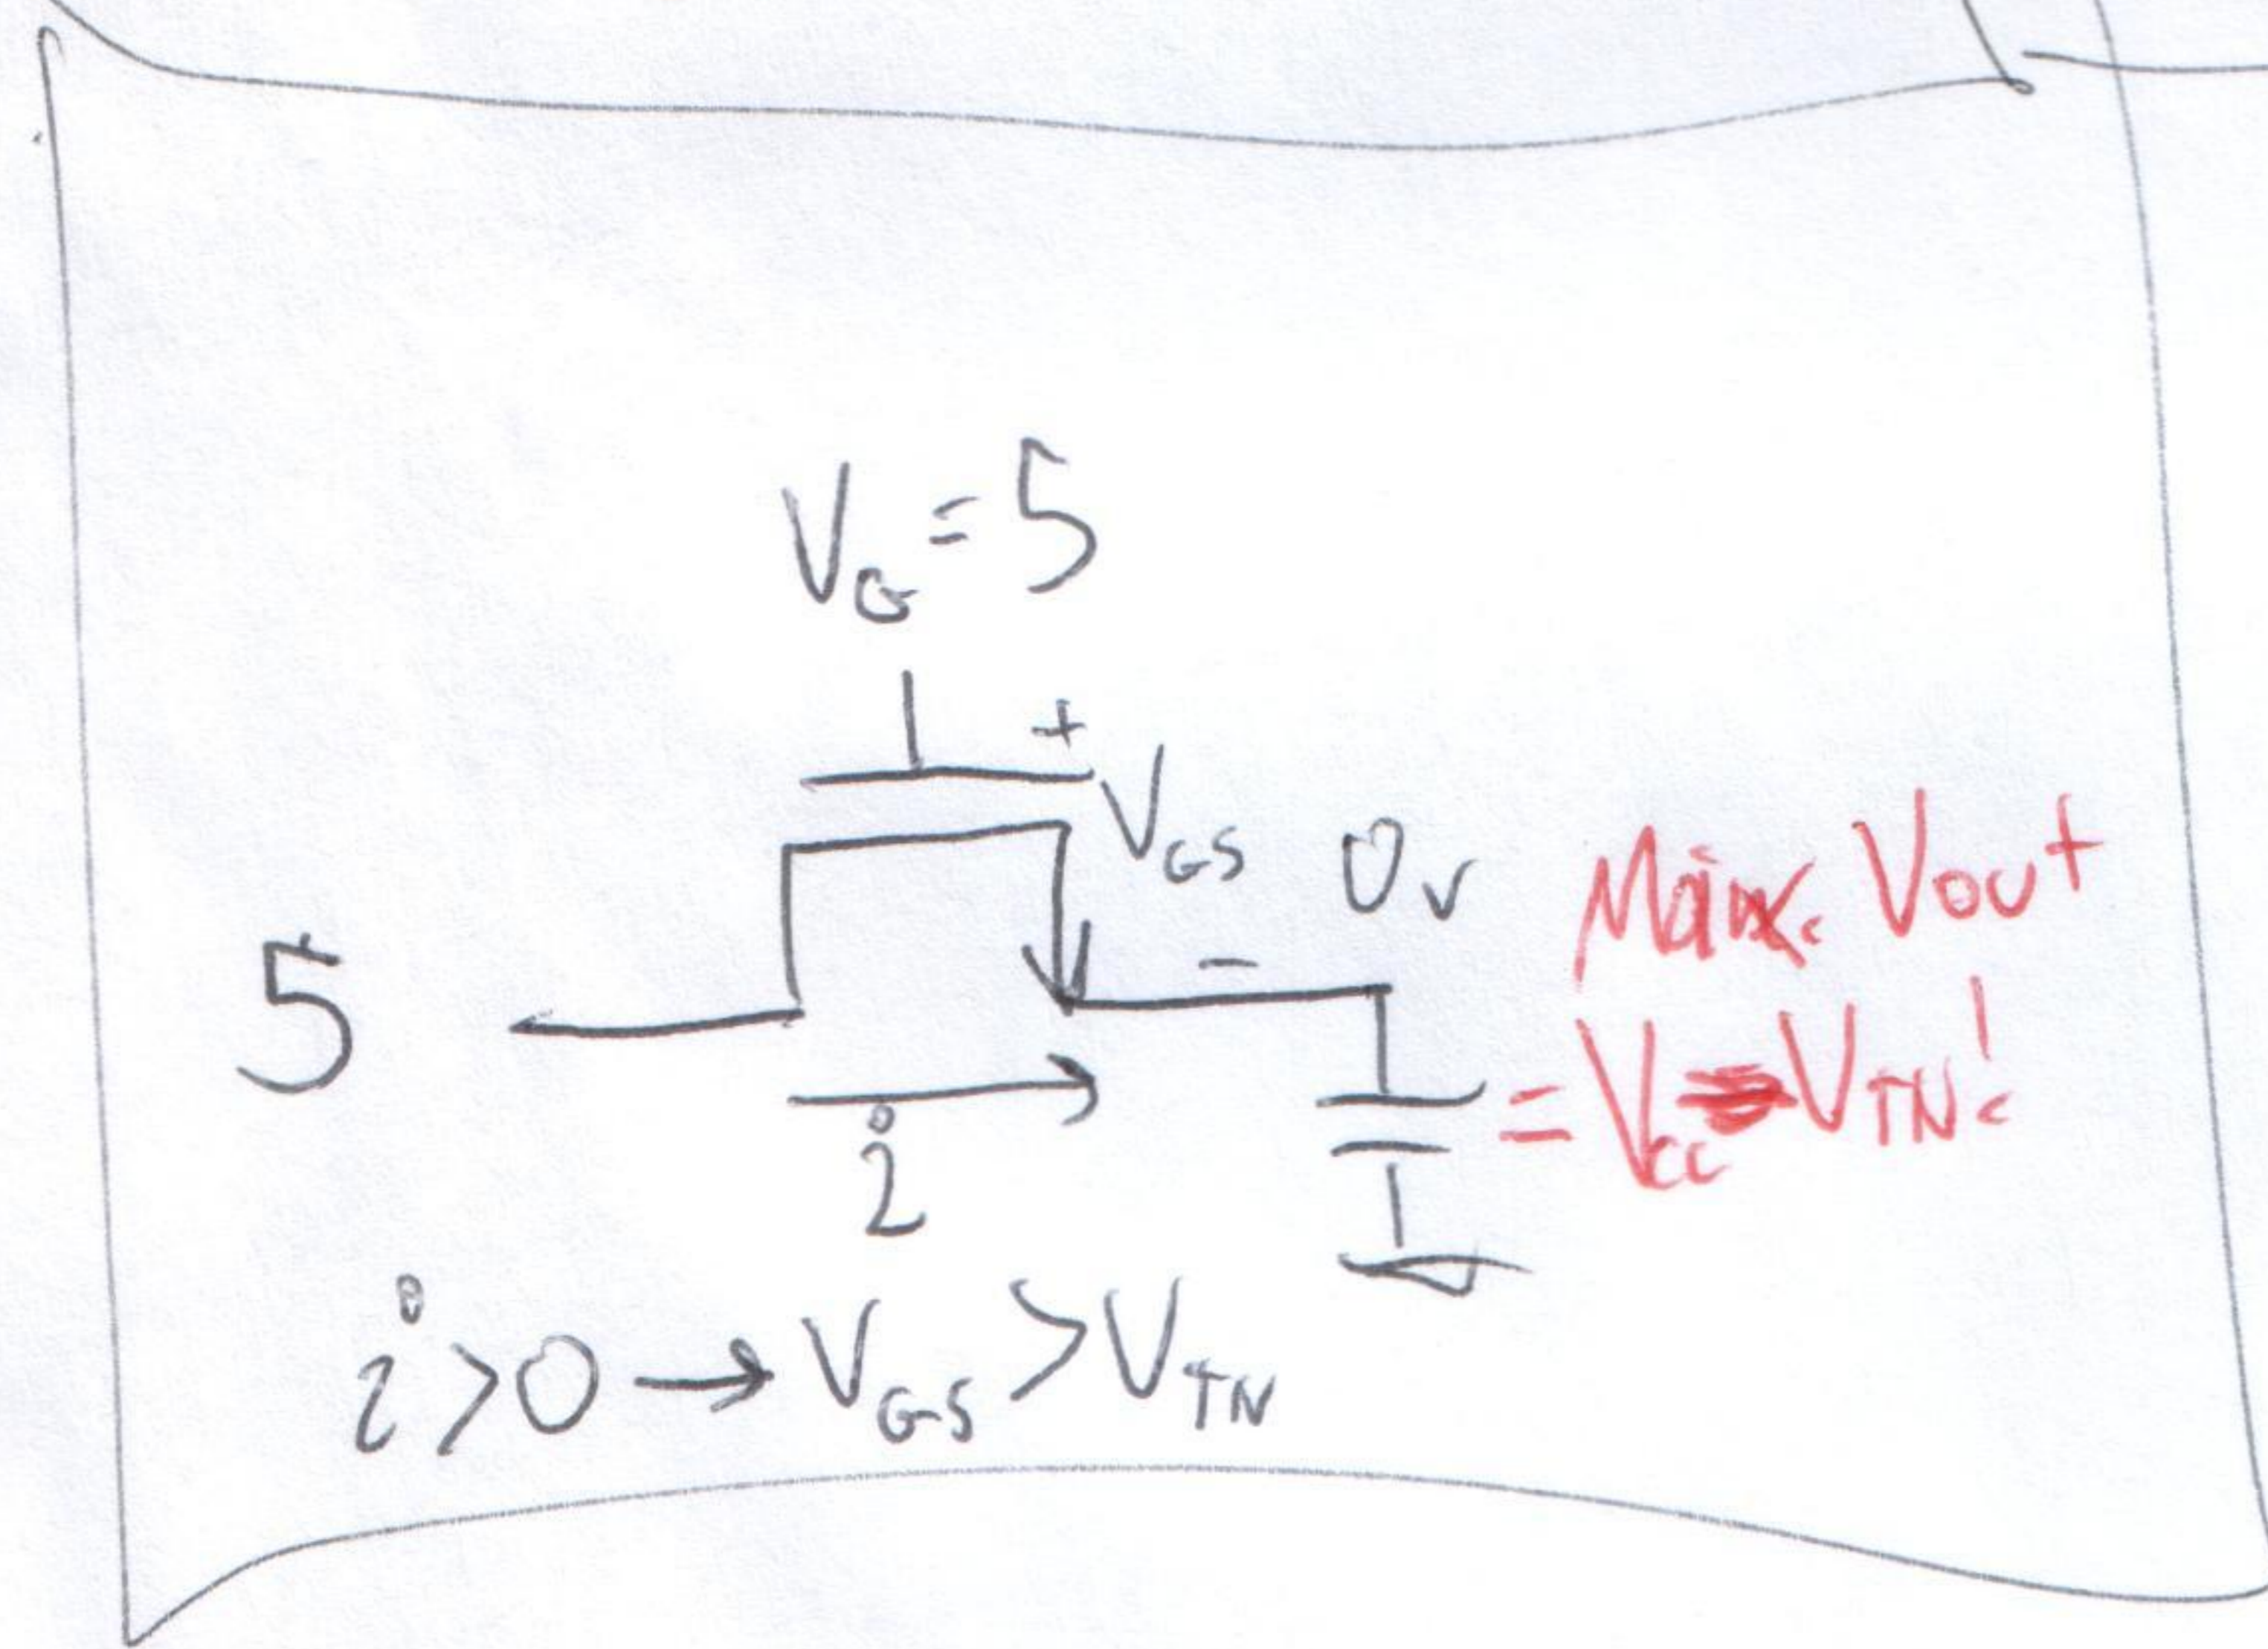 V_G = 5
+
V_GS
0v
Max. Vout
5
-
= Vcc - V_TN!
i
i > 0 → V_GS > V_TN